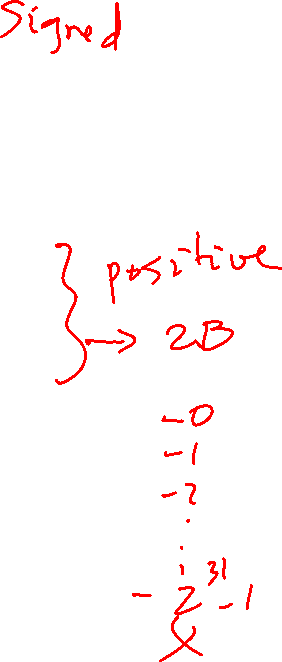 Signed
positive
→ 2B
-0
-1
-2
.
:
- 2^31 - 1